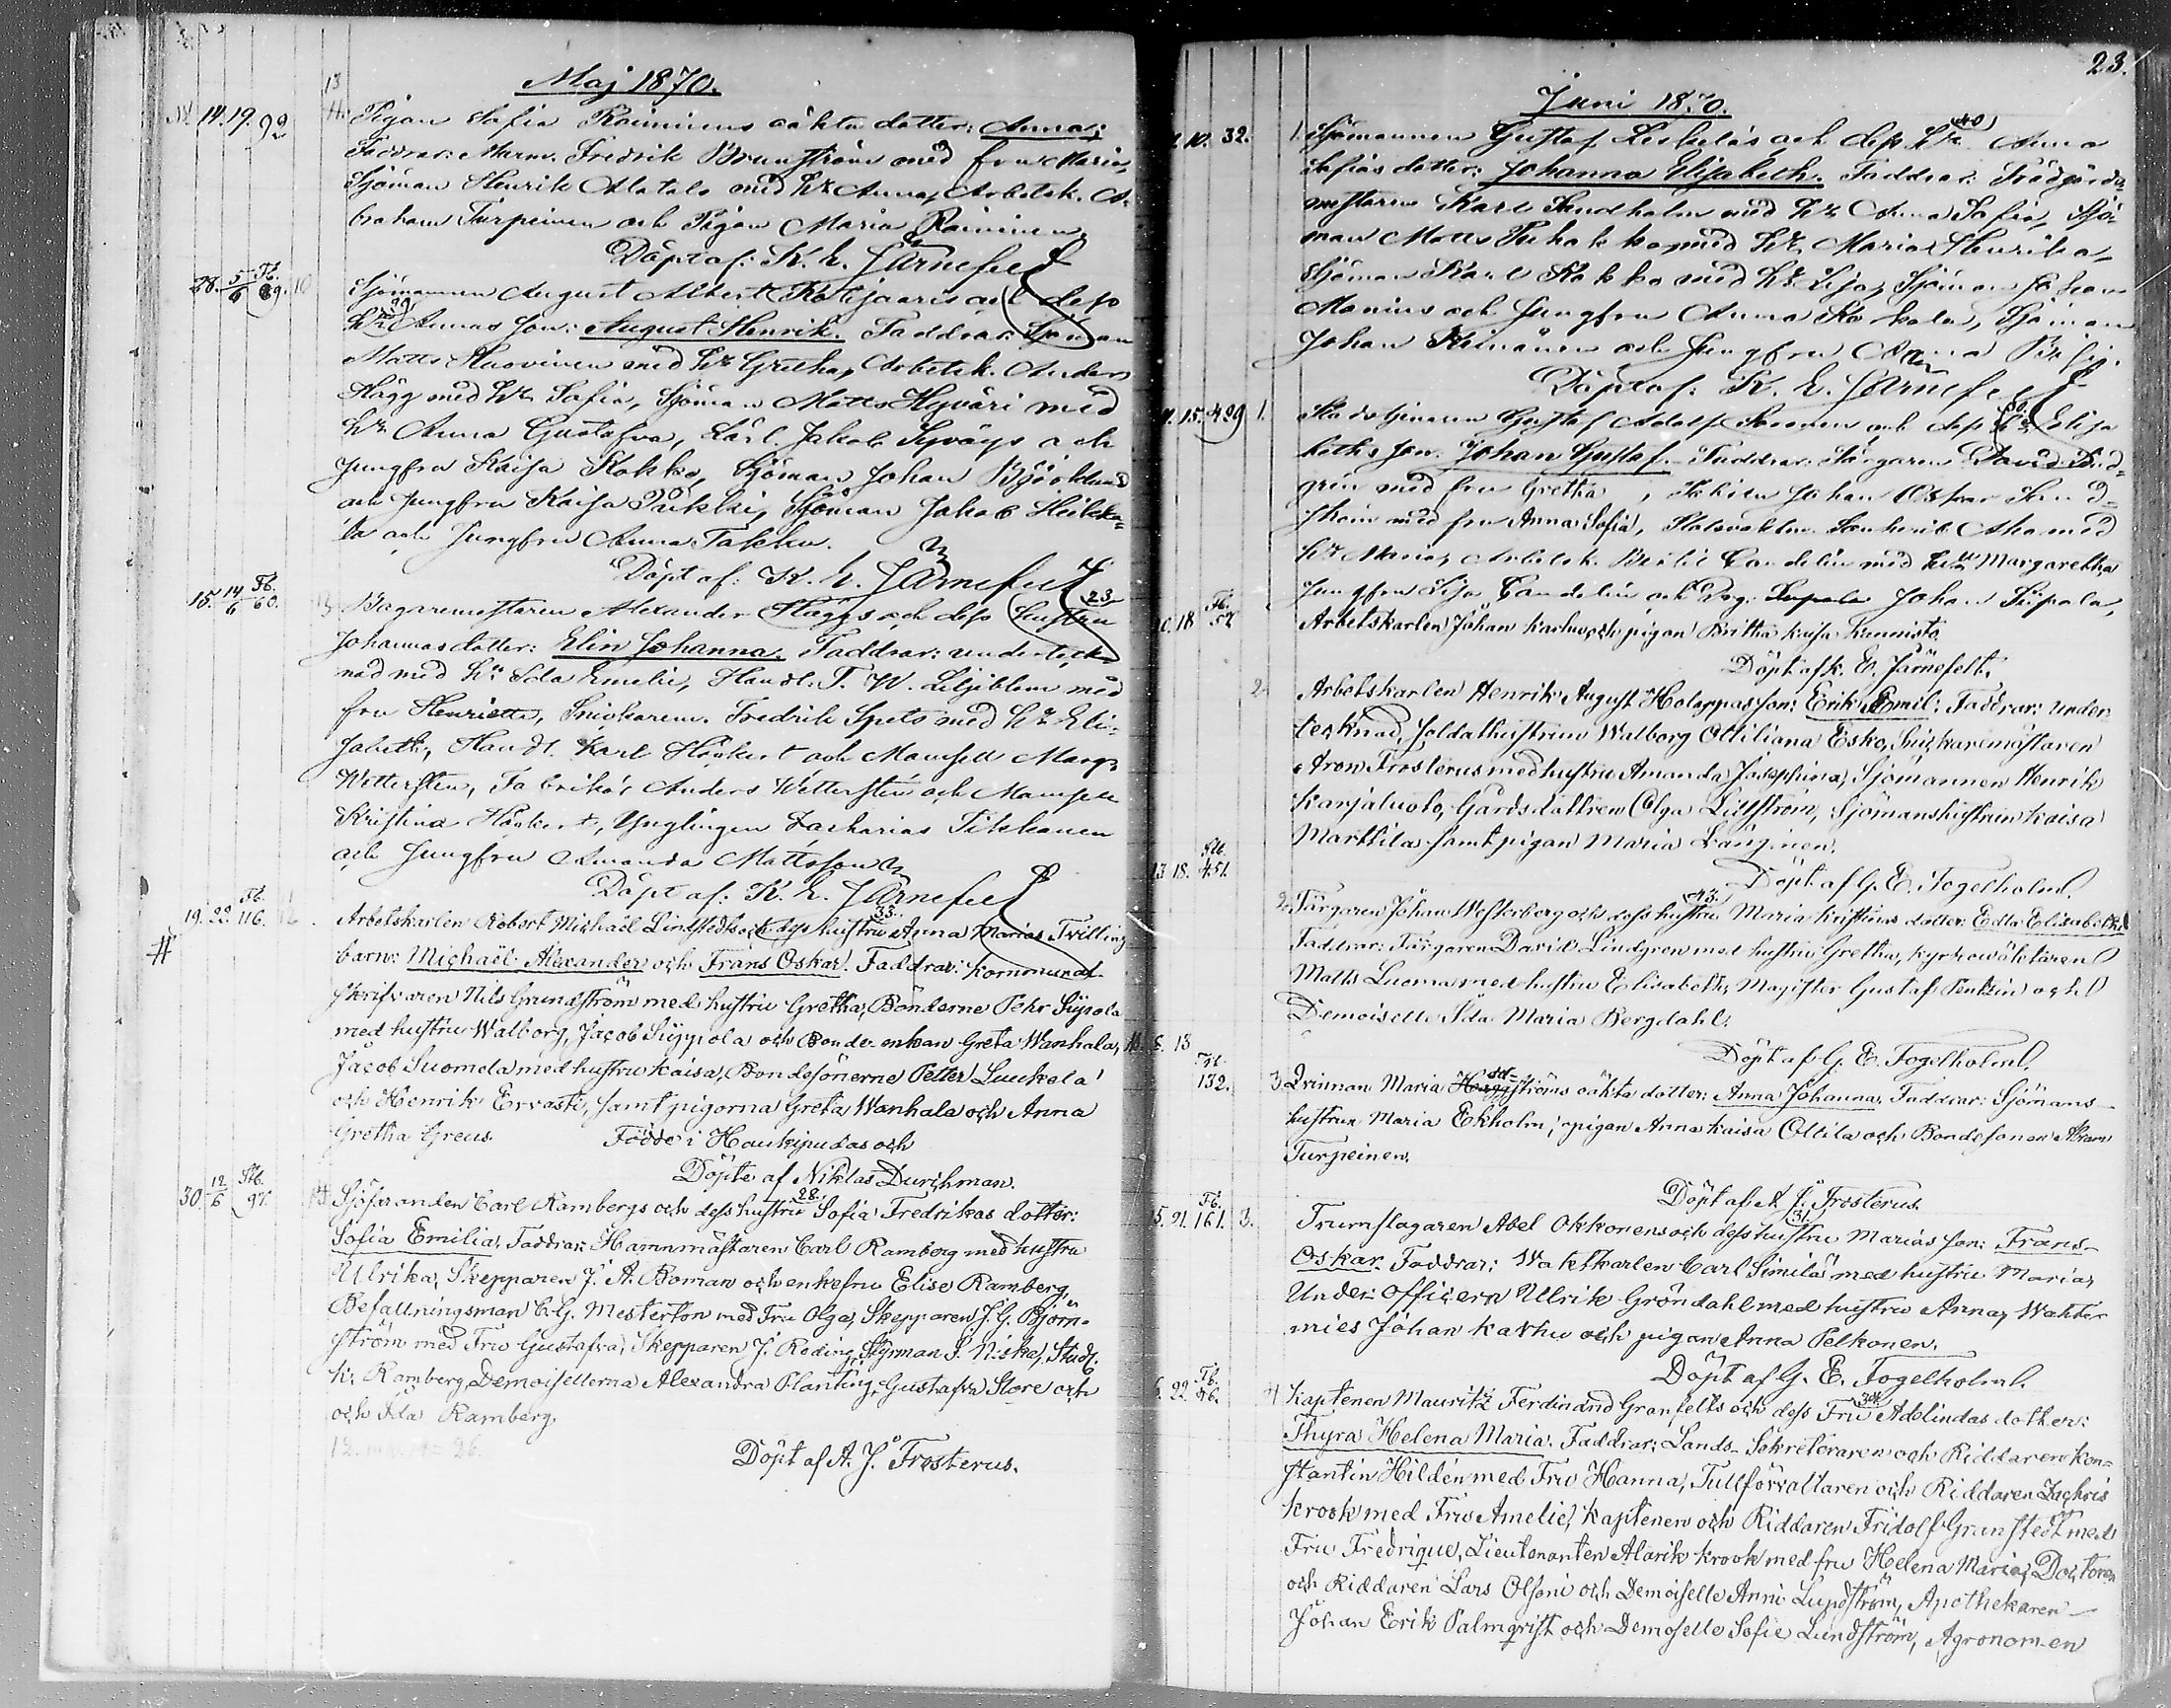 Maj 1870.
13
14. 19. 92
Pigan Sofia Raininens oäkta dotter: Anna;
Faddrar: Murm. Fredrik Brunström med fru Maria,
Sjöman Henrik Alatalo med h:u Anna, Arbetsk. A-
braham Turpeinen och Pigan Maria Raininen.
Döpt af: K. E. Järnefelt
28. 5/6 Fb. 89. 10
Sjömannen August Albert och dess
h:u Annas son: August Henrik. Faddrar: Sjöman
Matts Huovinen med h:u Gretha, Arbetsk. Anders
Hägg med h:u Sofia, Sjöman Matts Hyväri med
h:u Anna Gustafva, Karl Jakob och
Jungfru Kaisa Kokko, Sjöman Johan Björklund
och Jungfru Kaisa Sjöman Jakob Heikki-
la och Jungfru Anna Takku.
Döpt af: K. E. Järnefelt
15. 14/6 Fb. 60.
23
Bagaremästaren Alexander Häggs och dess hustru
Johannas dotter: Elin Johanna. Faddrar: underteck-
nad med h:u Ida Emelie, Handl. T. W. Liljeblom med
fru Henriette, Snickaren Fredrik Spets med h:u Eli-
sabeth, Handl. Karl Häckert och Mamsell Marg.
Wettersten, Fabrikör Anders Wettersten och Mamsell
Kristina Häckert, Ynglingen Zacharias Tikkanen
och Jungfru Amanda Mattsson
Döpt af: K. E. Järnefelt
19. 22. Fb. 116.
#
33.
Arbetskarlen Robert Michaël Lindstedts och dess hustru Anna Marias Tvilling
barn: Michaël Alexander och Frans Oskar. Faddrar: Kommunal-
skrifvaren Nils Grundström med hustru Gretha, Bönderne Pehr Sijpola
med hustru Walborg, Jacob Sijpola och Bonde-enkan Greta Wanhala,
Jacob Suomela med hustru Kaisa, Bondesönerne Petter Luukela
och Henrik Ervasti, samt pigorna Greta Wanhala och Anna
Gretha Greus. Födde i Haukipudas och
Döpte af Niklas Durchman.
30. 12/6 Stb. 97.
28.
Sjöfaranden Carl Rambergs och dess hustru Sofia Fredrikas dotter:
Sofia Emilia. Faddrar: Hamnmästaren Carl Ramberg med hustru
Ulrika, Skepparen J. A. Boman och enkefru Elise Ramberg,
Befallningsman C. G. Mesterton med Fru Olga, Skepparen J. G. Björn-
ström med Fru Gustafva, Skepparen J. Reding, Styrman S. Niska, Stud.
K. Ramberg, Demoisellerna Alexandra Planting, Gustafva Store och
och Ida Ramberg.
Döpt af A. J. Frosterus.
23.
Juni 1870.
10. 32. 1.
40
Sjömannen Gustaf Leskeläs och dess h:u Anna
Sofias dotter: Johanna Elisabeth. Faddrar: Trädgårds-
mästaren Karl Sandholm med h:u Anna Sofia, Sjö-
man Matts Tuhakka med h:u Maria Henrika,
Sjöman Karl Kokko med h:u Lisa, Sjöman Johan
Manius och Jungfru Anna Sjöman
Johan och Jungfru Anna
Döpt af: K. E. Järnefelt
15. 429 1.
30.
Gustaf Adolf och dess h:u Elisa
beths son: Johan Gustaf. Faddrar: Färgaren David Lind-
gren med fru Gretha, Johan Oskar
med fru Anna Sofia, Aho med
h:u Maria, Arbetsk. Candelin med h:u Margaretha
Jungfru Lisa Candelin och Drg. Johan Sipola,
Arbetskarlen Johan Karhu och pigan Britha Kaisa Kunnisto.
Döpt af K. E. Järnefelt.
18 Fb. 52
2.
Arbetskarlen Henrik August Holappas son: Erik Emil. Faddrar: under-
tecknad, Soldathustrun Walborg Ottiliana Esko, Snickaremästaren
Aron Frosterus med hustru Amanda Josephina, Sjömannen Henrik
Karjaluoto, Gårdsdottren Olga Lillström, Sjömanshustrun Kaisa
Marttila samt pigan Maria Länginen.
Döpt af G. E. Fogelholm.
13 18. Stb. 451.
43.
2. Färgaren Johan Westerberg och dess hustru Maria Kristinas dotter: Edla Elisabeth.
Faddrar: Färgaren David Lindgren med hustru Gretha, Kyrkowäktaren
Matts Luoma med hustru Elisabeth, Magister Gustaf Tentzin och
Demoiselle Ida Maria Bergdahl.
Döpt af G. E. Fogelholm.
13
132.
3. Qvinnan Maria oäkta dotter: Anna Johanna. Faddrar: Sjömans-
hustrun Maria Ekholm, pigan Anna Kaisa Ollila och Bondesonen Abram
Turpeinen.
Döpt af A. J. Frosterus.
5. 21. Fb. 161. 3.
31.
Trumslagaren Abel Okkonens och dess hustru Marias son: Frans
Oskar. Faddrar: Waktkarlen Carl Similä med hustru Maria,
Under-officern Ulrik Gröndahl med hustru Anna, Wahti-
mies Johan Karhu och pigan Anna Pelkonen.
Döpt af G. E. Fogelholm.
22. Fb. 46. 4
34.
Kaptenen Mauritz Ferdinand Granfelts och dess Fru Adelindas dotter:
Thyra Helena Maria. Faddrar: Lands-Sekreteraren och Riddaren Kon-
stantin Hildén med Fru Hanna, Tullförvaltaren och Riddaren Zachris
Krook med Fru Amelie, Kaptenen och Riddaren Fridolf Granstedt med
Fru Fredrique, Lieutenanten Alarik Krook med fru Helena Maria, Doctoren
och Riddaren Lars Olsoni och Demoiselle Anni Lundström, Apothekaren
Johan Erik Palmqvist och Demoselle Sofie Lundström, Agronomen